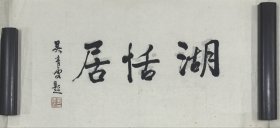 湖恬居
吴青霞题